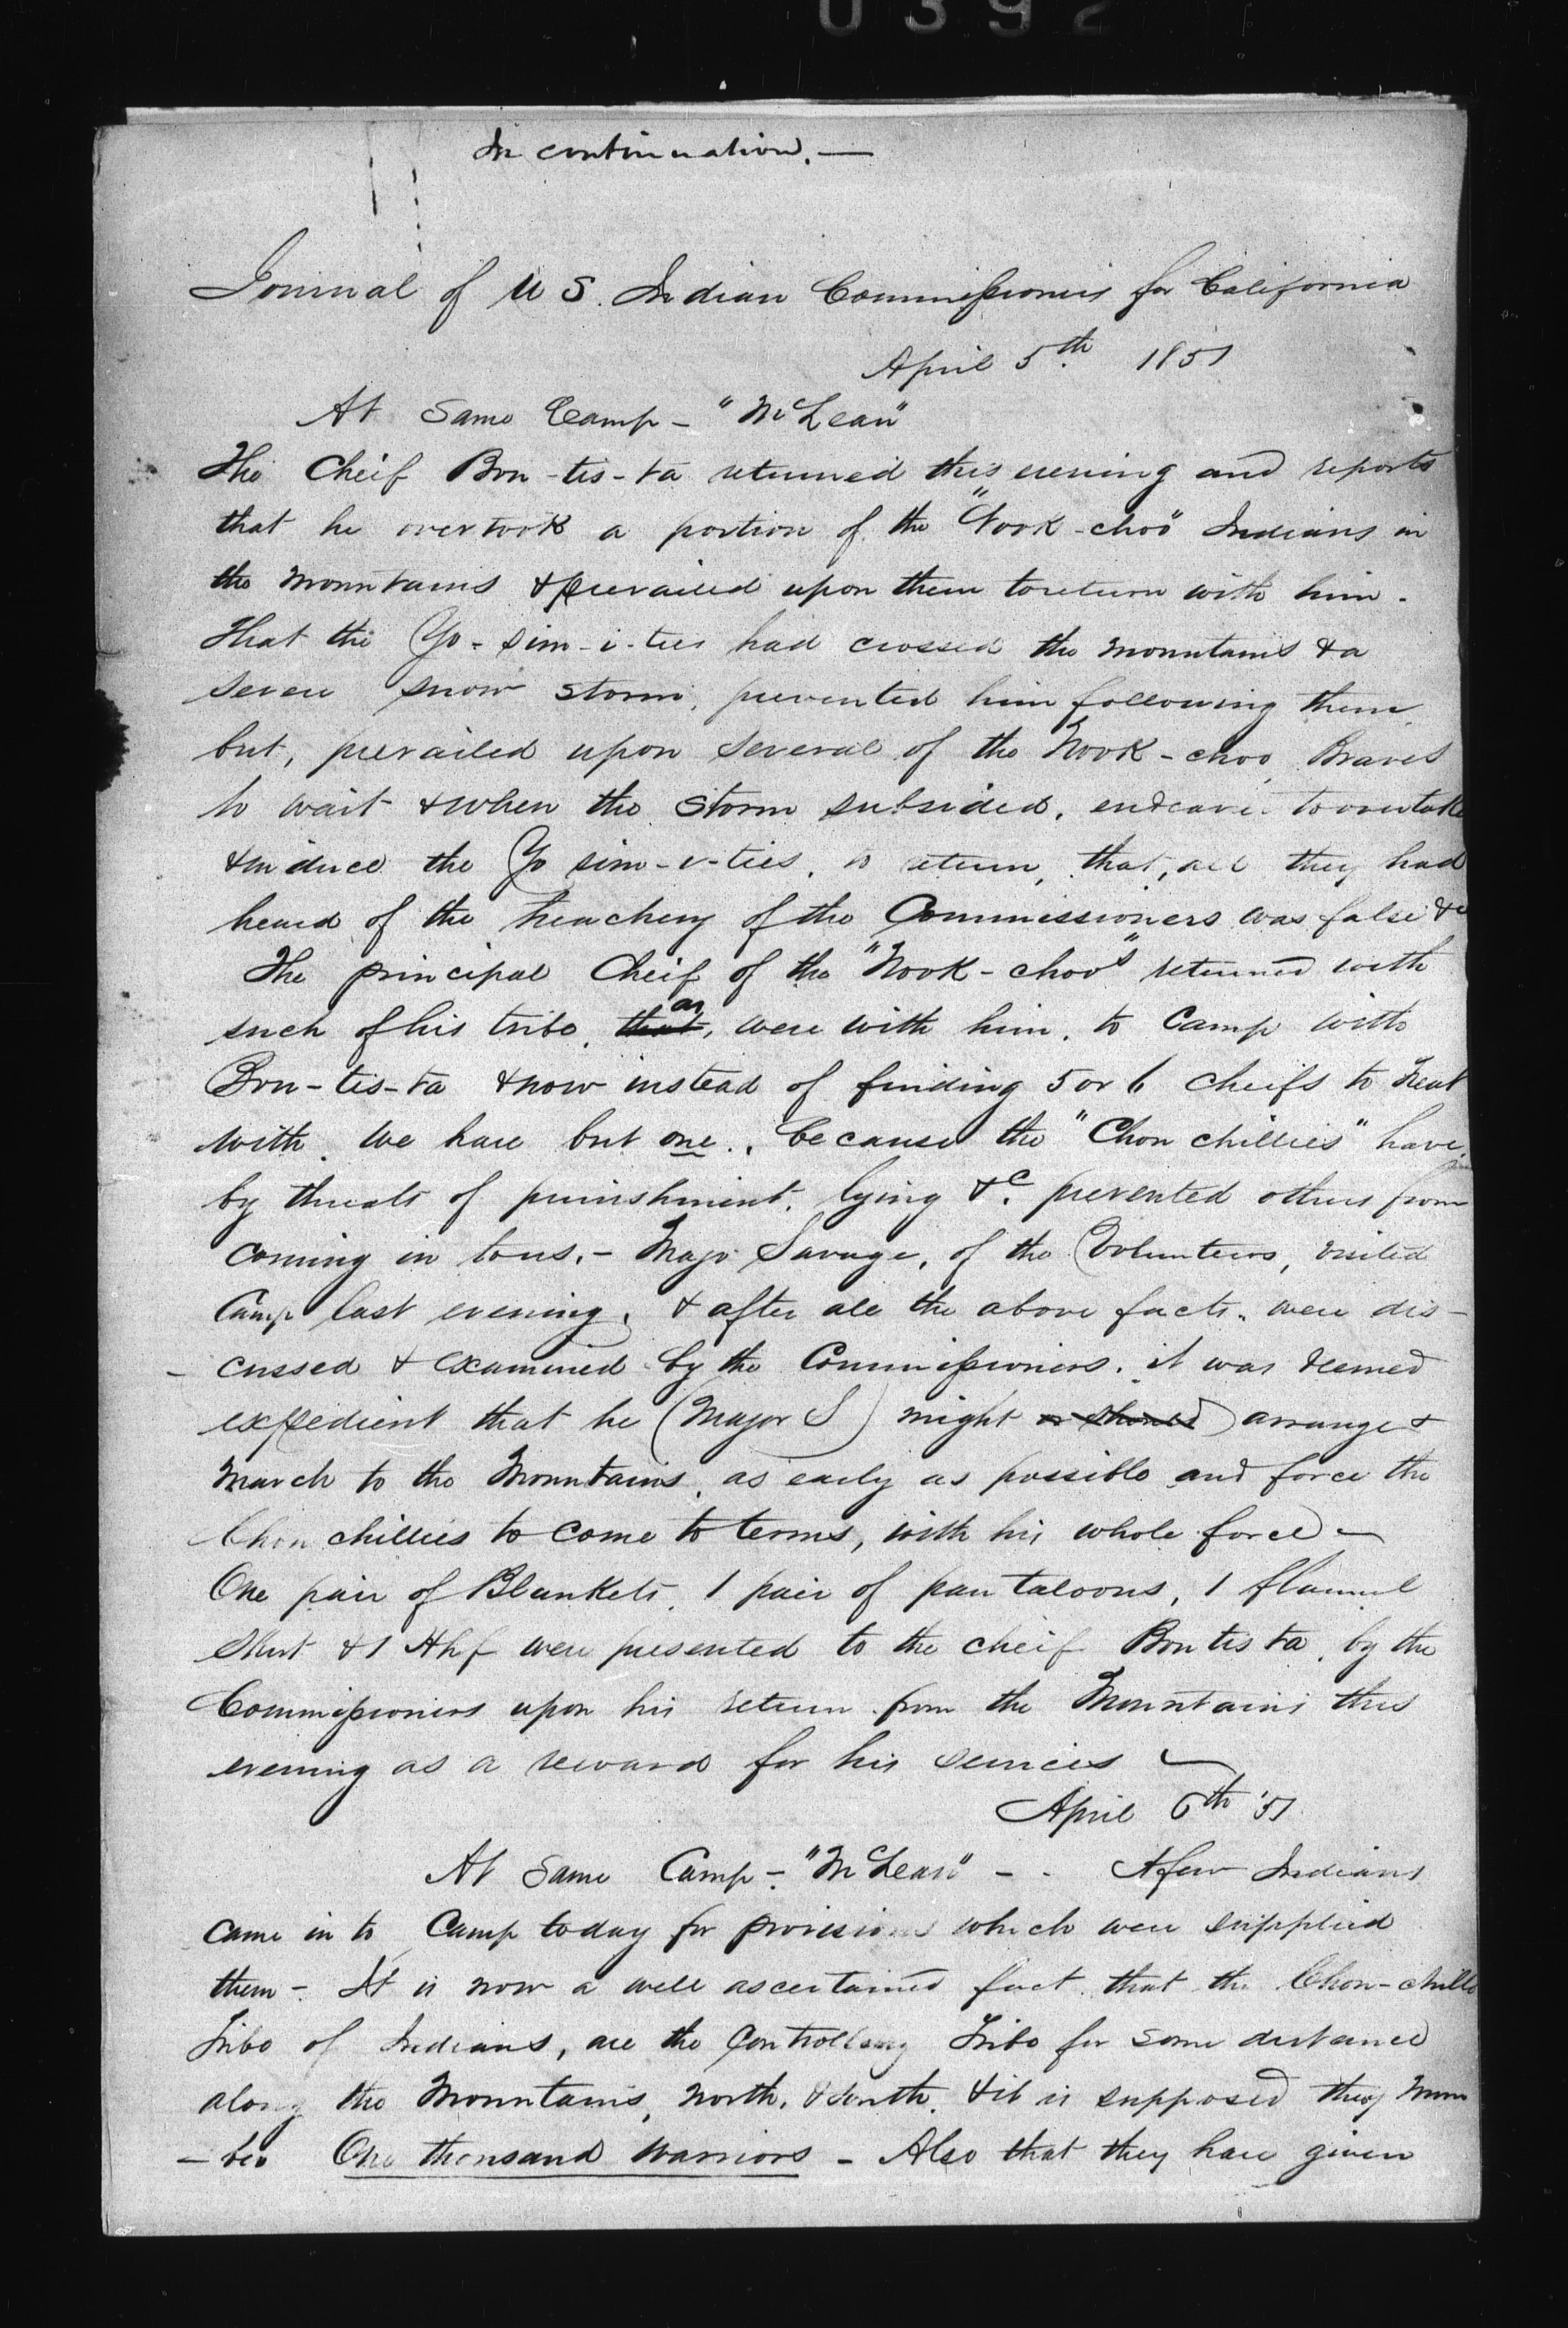 0392
In continuation. —
Journal of U S. Indian Commissioners for California
April 5th. 1851
At Same Camp - "McLean"
The Cheif Bon-tis-ta returned this evening and reports
that he overtook a portion of the "Nook-choo" Indians in
the mountains & prevailed upon them to return with him.
That the Yo-sim-i-ties had crossed the mountains & a
severe snow storm, prevented him following them
but, prevailed upon several of the Nook-choo Braves
to wait & when the storm subsided, endeavor to overtake
& induce the Yo sim-i-ties, to return, that, all they had
heard of the treachery of the Commissioners was false &c
The principal Cheif of the "Nook-choo" returned with
such of his tribe, that, as were with him, to Camp with
Bon-tis-ta & now instead of finding 5 or 6 cheifs to treat
with. We have but one., because the "Chon chillies" have
by threats of punishment, lying &c. prevented others from
coming in to us. - Major Savage, of the Volunteers, visited
Camp last evening, & after all the above facts, were dis-
- cussed & examined by the Commissioners, it was deemed
expedient that he (Major S) might or should arrange &
march to the Mountains, as early as possible and force the
Chon chillies to come to terms, with his whole force -
One pair of Blankets, 1 pair of pantaloons, 1 flannel
Shirt & 1 Hhf were presented to the cheif Bon tis ta, by the
Commissioners upon his return from the Mountains this
evening as a reward for his services -
April 6th '51
At Same Camp - "McLean" - - A few Indians
came in to Camp today for provisions which were supplied
them - It is now a well ascertained fact that the Chon-chilli
Tribe of Indians, are the Controlling Tribe for some distance
along the Mountains, North, & South, & it is supposed they num
- ber One thousand Warriors - Also that they have given